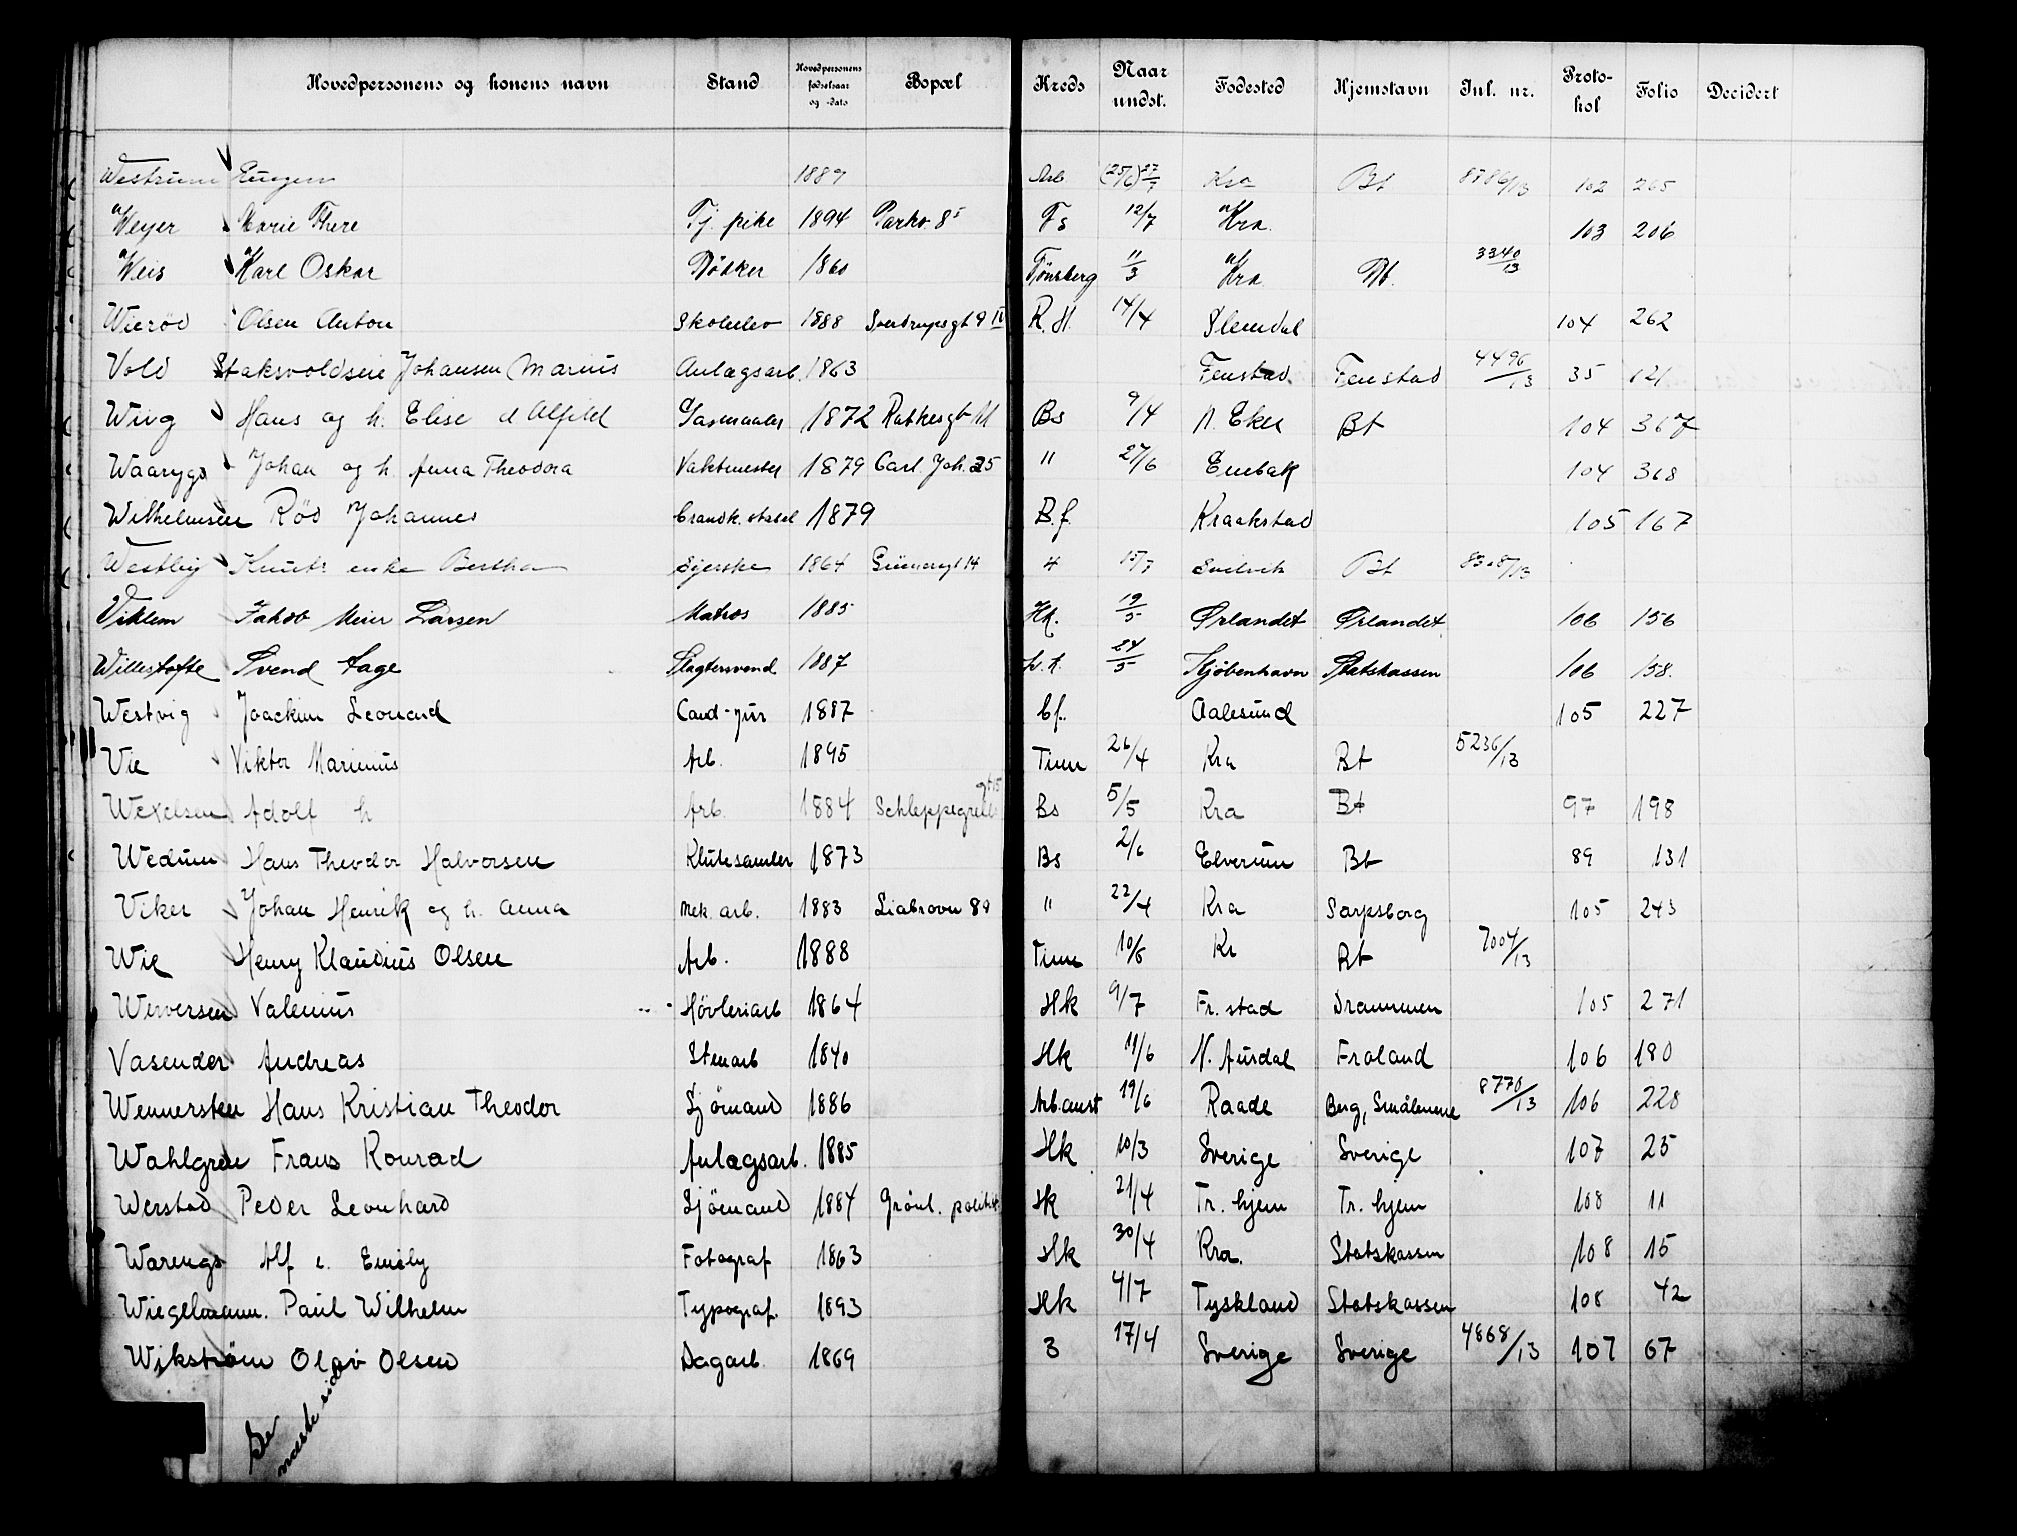 Hovedpersonens og konens navn Stand Hovedpersonens fødselsaar og -dato Bopæl Kreds Naar undst. Fødested Hjemstavn Inl. nr. Proto-kol Folio Decidert
Westrum Eugen 1889 Arb (25/6) 27/7 Kra Bt 8786/13 102 265
Weyer Marie There Tj. pike 1894 Parkv. 8 Fs 12/7 Kra. 103 206
Weis Karl Oskar Bödker 1860 Tønsberg 11/3 Kra Bt. 3340/13
Wierød Olsen Anton Skoleelev 1888 Sverdrupsgt 9 IV R.H. 14/4 Slemdal 104 262
Vold Staksvoldseie Johansen Marius Anlægsarb. 1863 Fenstad Fenstad 4496/13 35 121
Wiig Hans og h. Elise d Alfild Gasmaaler 1872 Ratkesgt 11 Bs 9/4 N. Eker Bt 104 367
Waarygs Johan og h. Anna Theodora Vaktmester 1879 Carl Joh. 25 " 27/6 Enebak 104 368
Wilhelmsen Rød Johannes 1879 B.f. Kraakstad 105 167
Westby Knuts enke Bertha Syerske 1864 Grünersgt 14 4 15/7 Svelvik Bt 8308/13
Viklem Jakob Meier Larsen Matros 1885 Hk. 19/5 Ørlandet Ørlandet 106 156
Willestofte Svend Aage Slagtersvend 1887 24/5 Kjøbenhavn Statskassen 106 158.
Westvig Joackim Leonard Cand-jur 1887 Cf. Aalesund 105 227
Vie Viktor Marinius Arb. 1895 Tinn 26/4 Kra Bt 5236/13
Wexelsen Adolf h Arb. 1884 Schleppegrells gt 15 Bs 5/5 Kra Bt 97 198
Wedum Hans Theodor Halvorsen Klutesamler 1873 Bs 2/6 Elverum Bt 89 131
Viker Johan Henrik og h. Anna Mek. arb. 1883 Liabrovn 89 " 22/4 Kra Sarpsborg 105 243
Wie Henry Klaudius Olsen Arb. 1888 Tinn 10/6 Kr Bt 7004/13
Werversen Valenius Høvleriarb 1864 Hk 9/7 Fr. stad Drammen 105 271
Vasender Andreas Stenarb 1840 Hk 11/6 N. Aurdal Froland 106 180
Wennersten Hans Kristian Theodor Sjømand 1886 Arb.anst 19/6 Raade Berg, Smålenene 8770/13 106 228
Wahlgren Frans Konrad Anlægsarb. 1885 Hk 10/3 Sverige Sverige 107 25
Werstad Peder Leonhard Sjømand 1884 Grønl. politist. Hk 21/4 Tr. hjem Tr. hjem 108 11
Warengs Alf e. Emily Fotograf 1863 Hk 30/4 Kra. Statskassen 108 15
Wiegelmann. Paul Wilhelm Typograf. 1893 Hk 4/7 Tyskland Statskassen 108 42
Wikstrøm Olav Olsen Dagarb. 1869 3 17/4 Sverige Sverige 4868/13 107 67
Se næste side